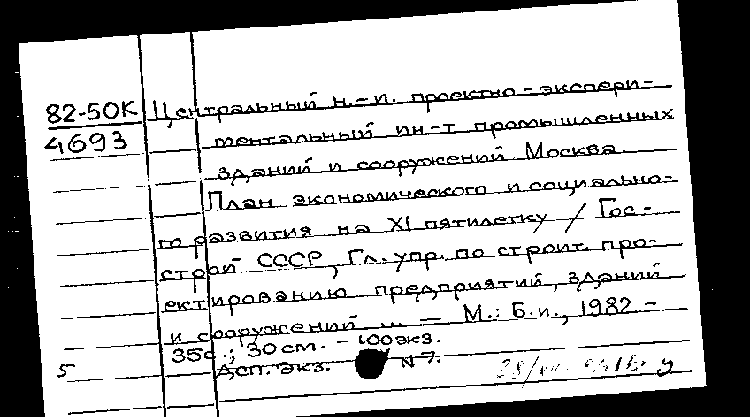 82-50К Центральный н.-и. проектно-экспери-
4693 ментальный ин-т промышленных
зданий и сооружений Москва.
План экономического и социально-
го развития на XI пятилетку / Гос-
строй СССР, Гл. упр. по строит. про-
ектированию предприятий, зданий
и сооружений ... — М.: Б.и., 1982 -
35с.; 30см. - 100экз.
5 Дсп. экз. N 7.